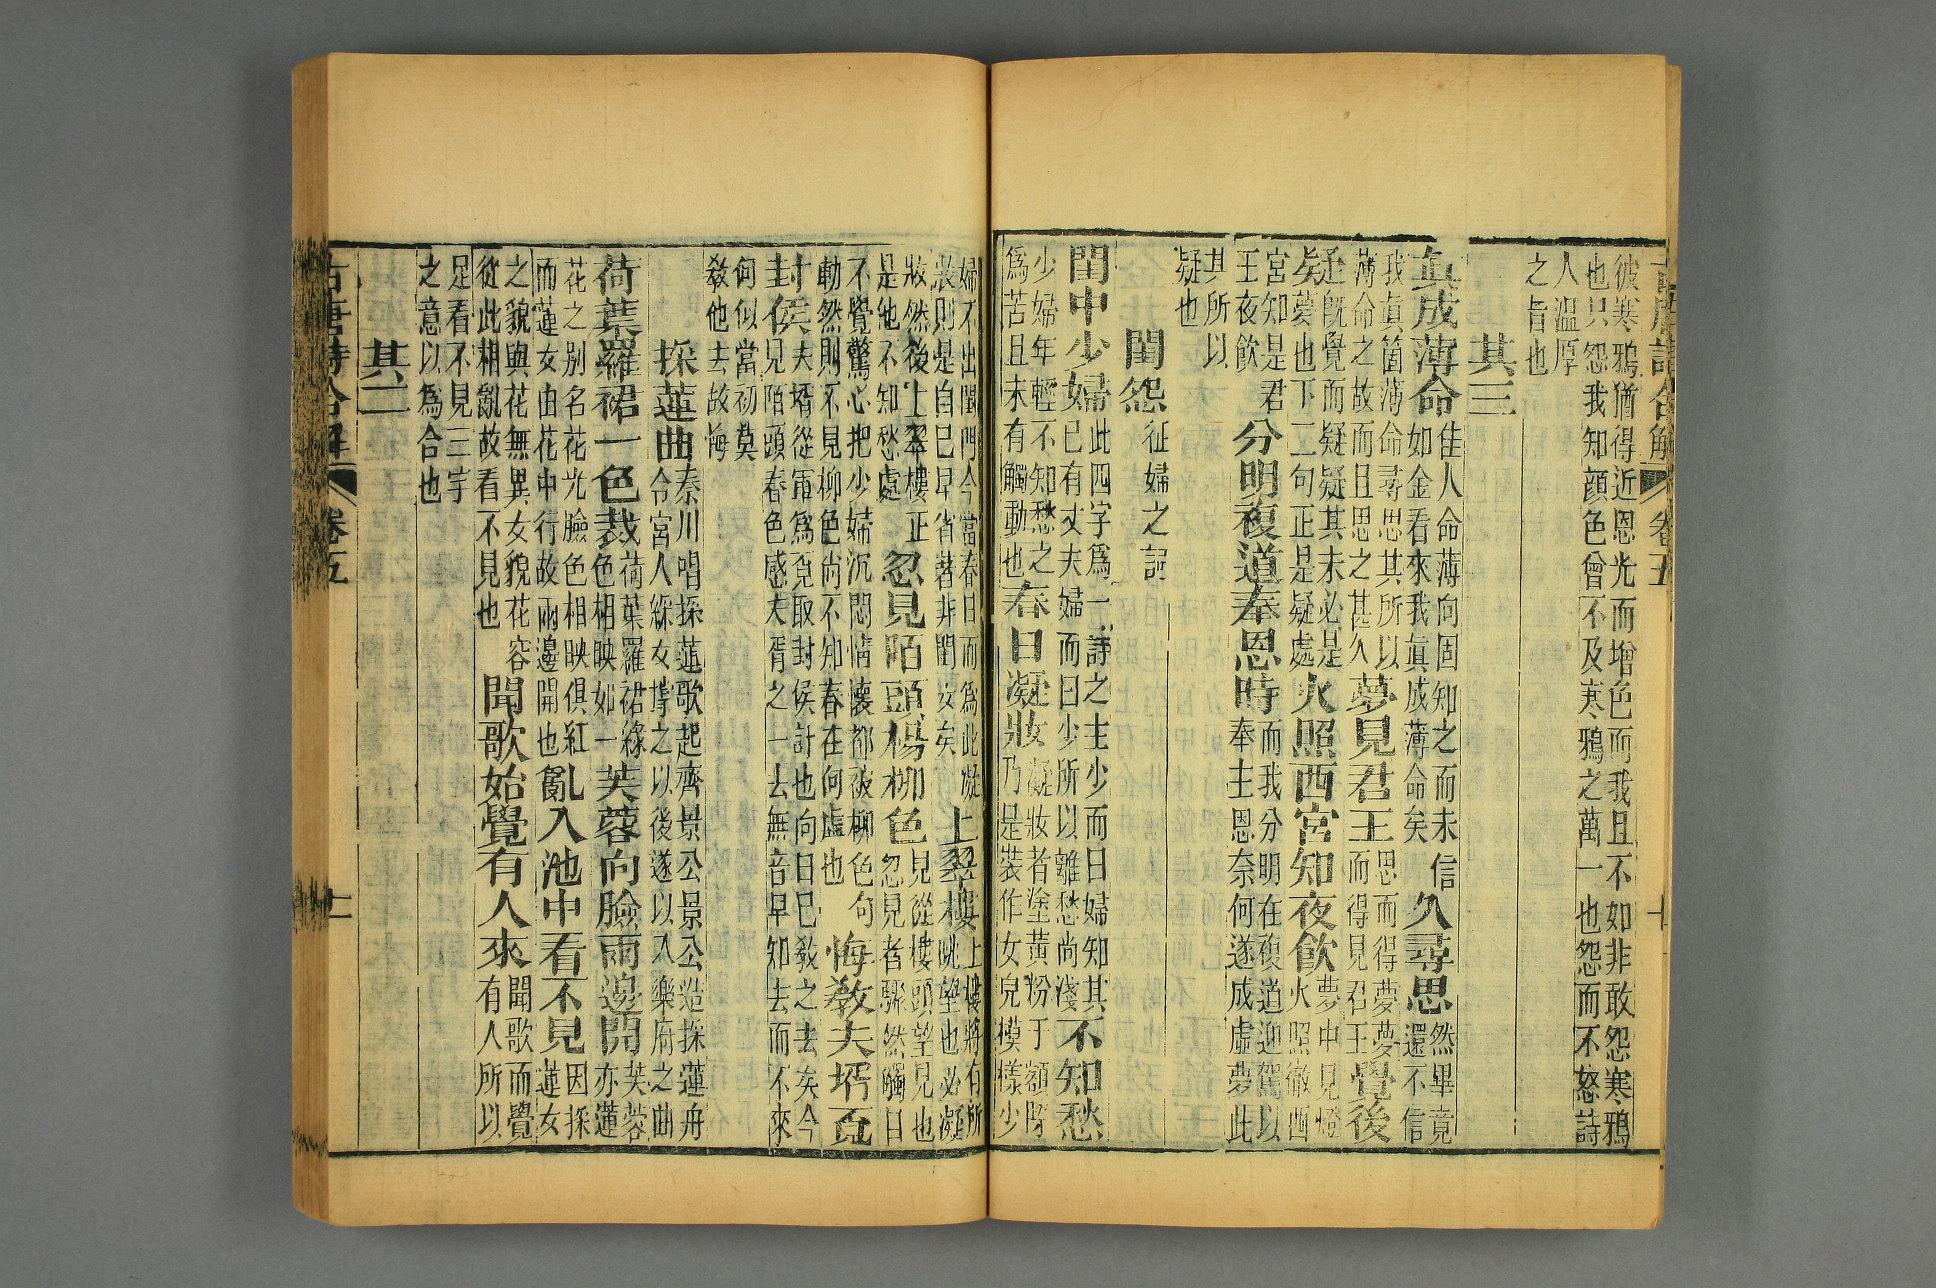 古唐詩合解 卷五 十
彼寒鴉猶得近恩光而增色而我且不如非敢怨寒鴉
也只怨我知顔色曾不及寒鴉之萬一也怨而不怒詩
人溫厚
之旨也
其三
真成薄命 佳人命薄向固知之而未信 如金看來我真成薄命矣 久尋思 然畢竟 還不信
我真箇薄命尋思其所以 薄命之故而且思之甚久 夢見君王 思而得夢夢 而得見君王 覺後
疑旣覺而疑疑其未必是 夢也下二句正是疑處 火照西宮知夜飲 夢中見燈 火照徹西
宮知是君 王夜飲 分明複道奉恩時 而我分明在複道迎駕以 奉主恩奈何遂成虛夢此
其所以
疑也
閨怨 征婦之詞
閨中少婦 此四字爲一詩之主少而曰婦知其 已有丈夫婦而曰少所以離愁尚淺 不知愁
少婦年輕不知愁之 爲苦且未有觸動也 春日凝妝 凝妝者塗黃粉于額旣 乃是裝作女兒模樣少
婦不出閨門今當春日而爲此凝 妝則是自巳早省著非閨女矣 上翠樓 上樓將有所 眺望也必凝
妝然後上翠樓正 是他不知愁處 忽見陌頭楊柳色 見從樓頭望見也 忽見者驟然觸目
不覺驚心把少婦沉悶情懷都被柳色句 動然則不見柳色尚不知春在何處也 悔教夫壻覓
封侯 夫壻從軍爲覓取封侯計也向日巳教之去矣今 見陌頭春色感夫壻之一去無音早知去而不來
何似當初莫
教他去故悔
採蓮曲 秦川唱採蓮歌起齊景公景公造採蓮舟 令宮人綵女㨾之以後遂以入樂府之曲
荷葉羅裙一色裁 荷葉羅裙綠 色相映如一 芙蓉向臉兩邊開 芙蓉 亦蓮
花之别名花光臉色相映俱紅 而蓮女由花中行故兩邊開也 亂入池中看不見 因採 蓮女
之貌與花無異女貌花容 從此相亂故看不見也 聞歌始覺有人來 聞歌而覺 有人所以
足看不見三字
之意以爲合也
其二
古唐詩合解 卷五 十一